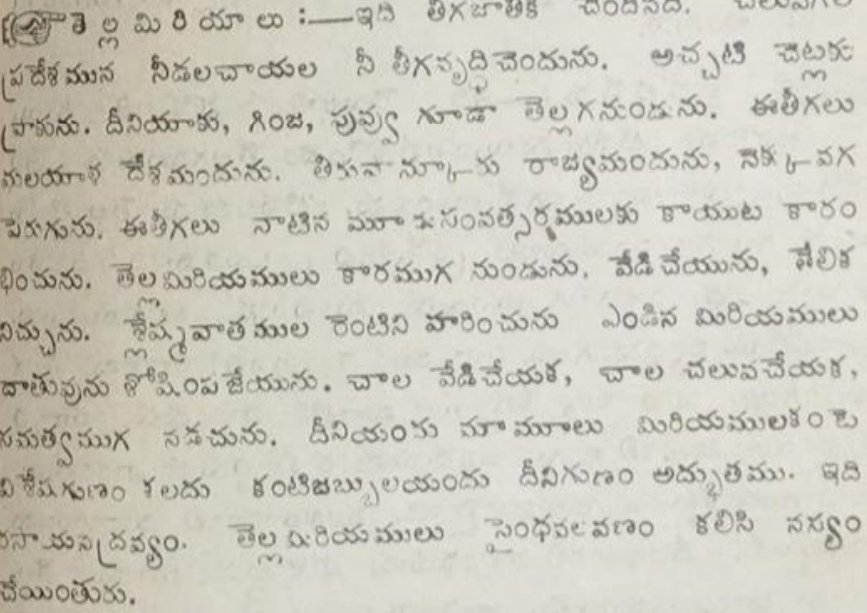 తెల్ల మిరియాలు :—ఇది తీగజాతికి చెందినది. చలువగల
ప్రదేశమున నీడలచాయల నీ తీగవృద్ధిచెందును. అచ్చటి చెట్లకు
ప్రాకును. దీనియాకు, గింజ, పువ్వు గూడా తెల్లగనుండును. ఈతీగలు
మలయాళ దేశమందును. తిరువాన్కూరు రాజ్యమందును, నెక్కువగ
పెరుగును. ఈతీగలు నాటిన మూడుసంవత్సరములకు కాయుట కారం
భించును. తెల్లమిరియములు కారముగ నుండును. వేడిచేయును, తేలిక
నిచ్చును. శ్లేష్మవాతముల రెంటిని హరించును ఎండిన మిరియములు
దాతువును శోషింపజేయును. చాల వేడిచేయక, చాల చలువచేయక,
సమత్వముగ నడచును. దీనియందు మామూలు మిరియములకంటె
విశేషగుణం కలదు కంటిజబ్బులయందు దీనిగుణం అద్భుతము. ఇది
రసాయనద్రవ్యం. తెల్లమిరియములు సైంధవలవణం కలిసి నస్యం
చేయింతురు.